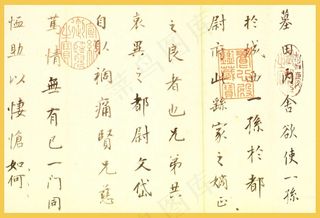 墓田丙舍欲使一孫
於城西一孫於都
尉府此繇家之嫡正
之良者也兄弟共
哀異之都尉文岱
自以禍痛賢兄慈
篤情無有已一門同
恤助以悽愴如何